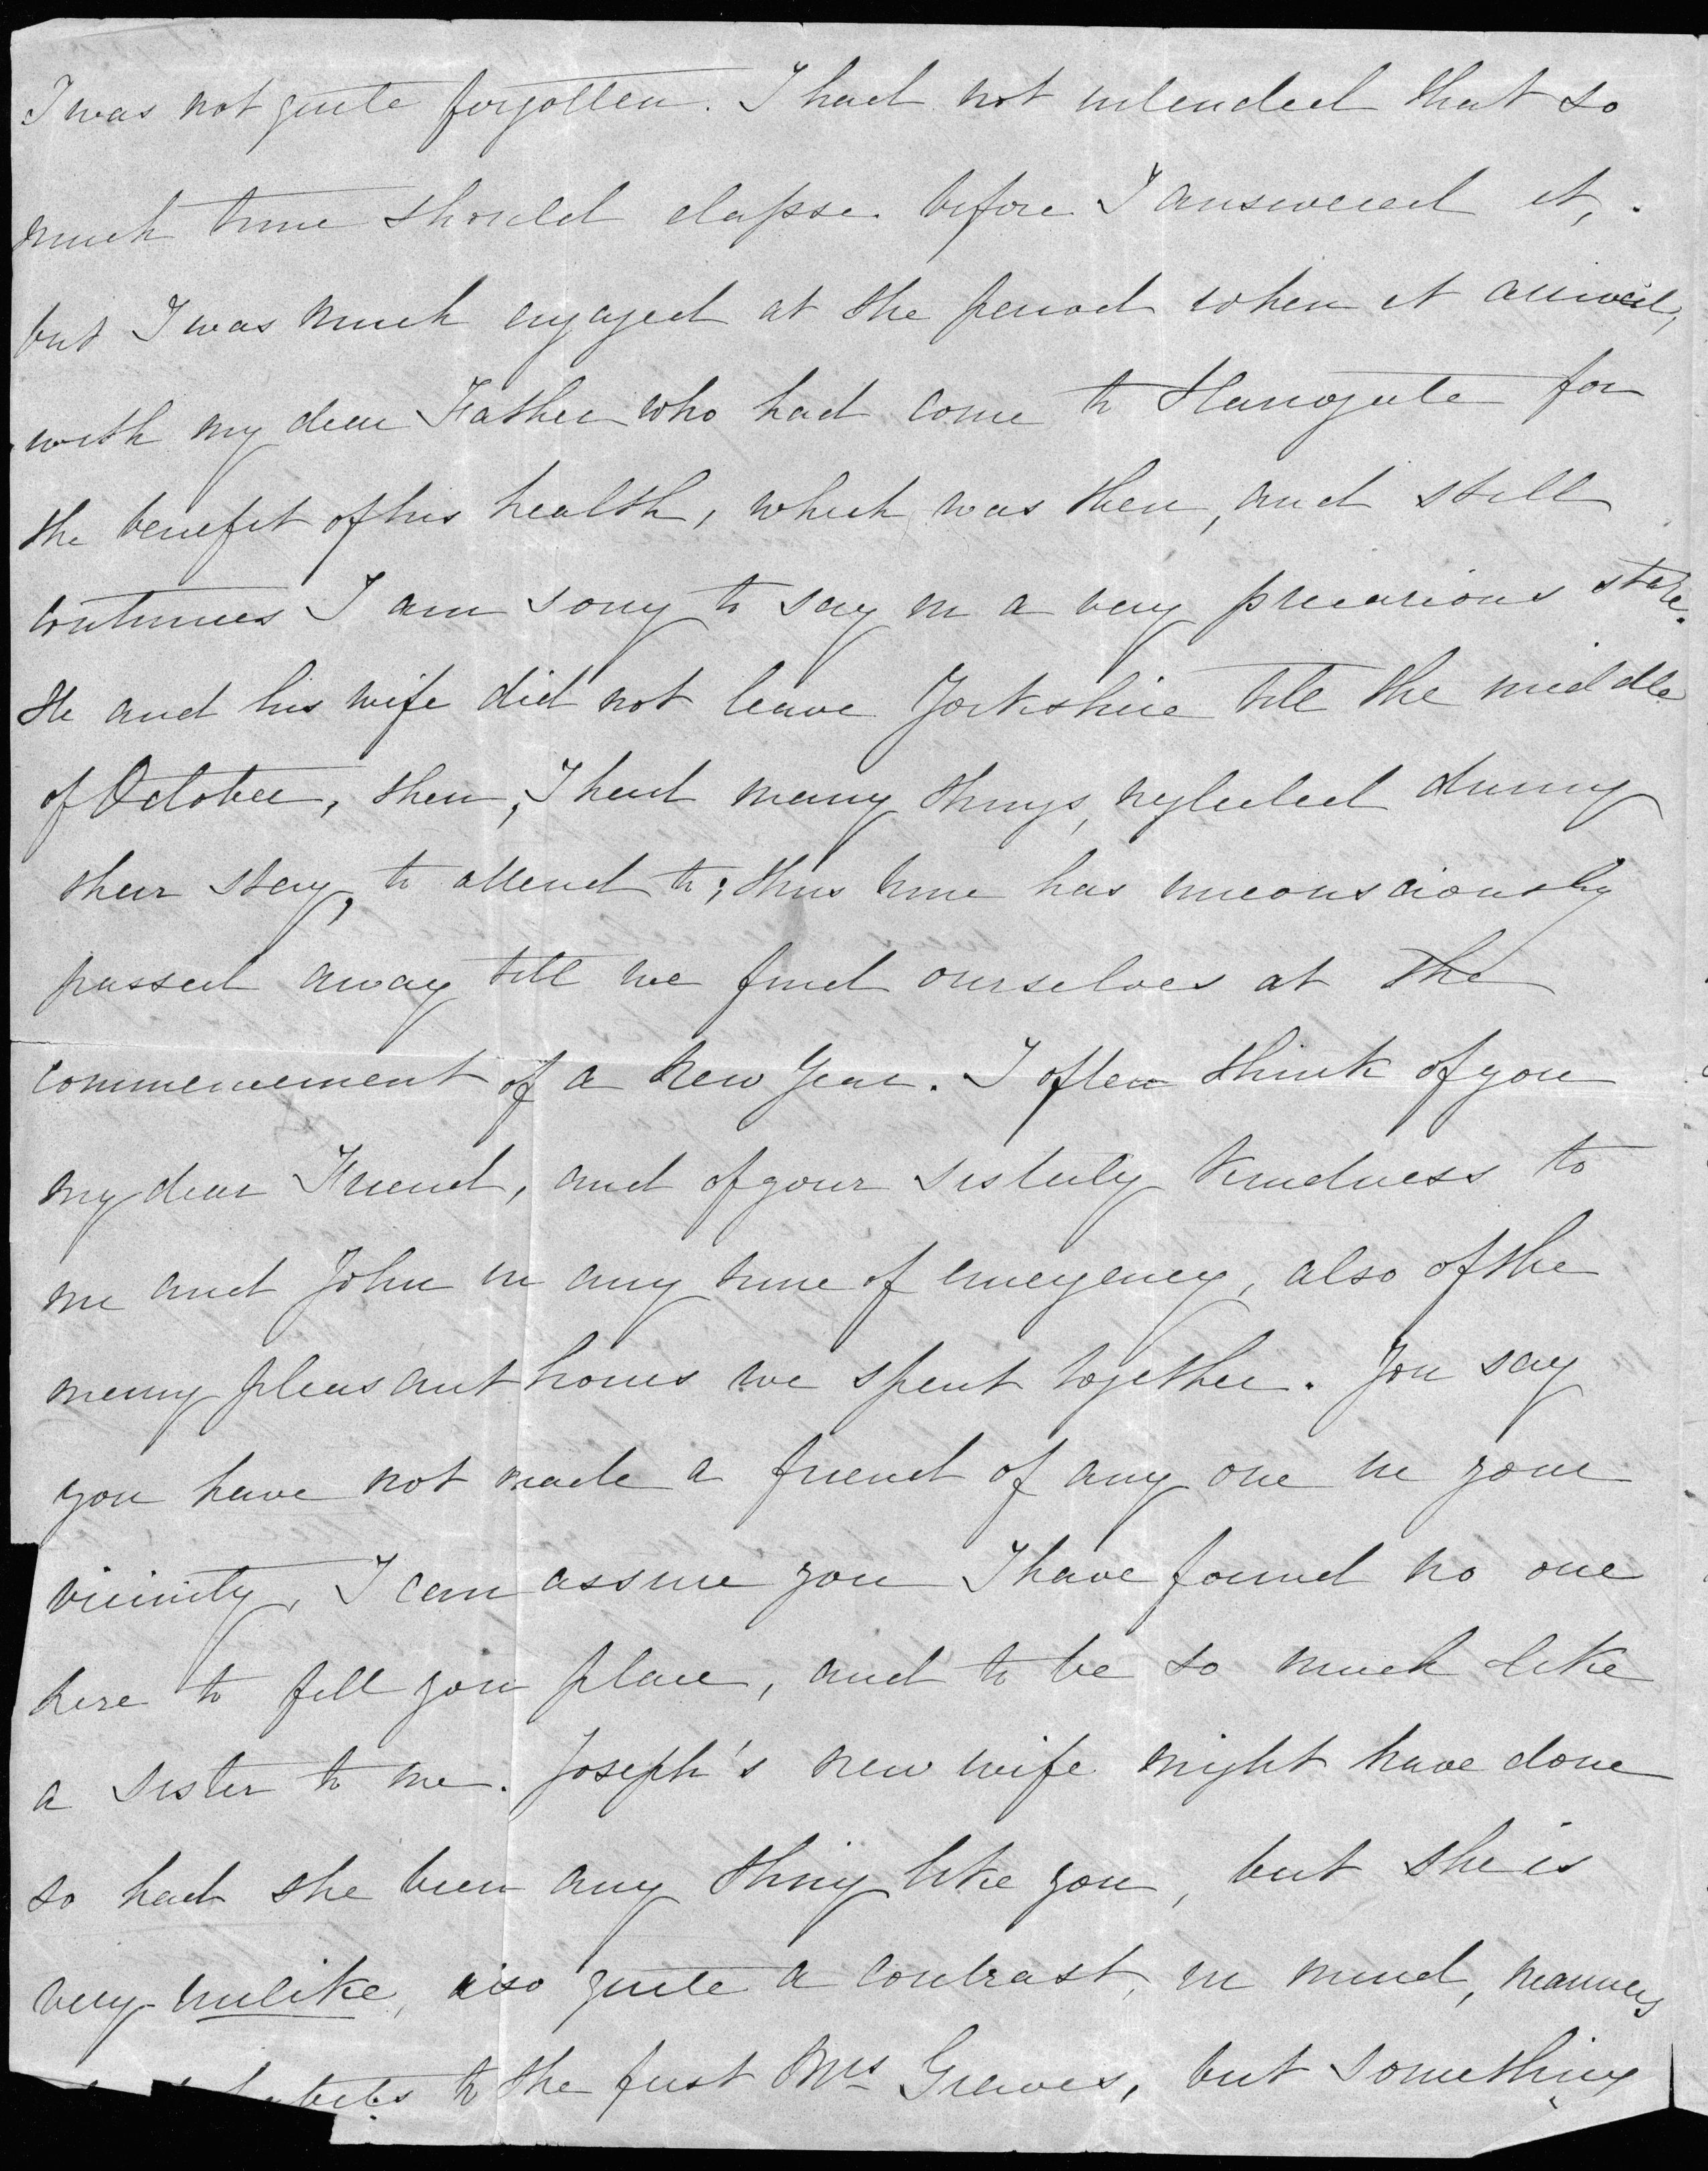 I was not quite forgotten. I had not intended that so
much time should elapse before I answered it,
but I was much engaged at the period when it arrived,
with my dear Father who had come to Harrogate for
the benefit of his health, which was then, and still
continues I am sorry to say in a very precarious state.
He and his wife did not leave Yorkshire till the middle
of October, then, I had many things, neglected during
their stay, to attend to; thus time has unconsciously
passed away till we find ourselves at the
commencement of a New Year. I often think of you
my dear Friend, and of your sisterly kindness to
me and John in any time of emergency, also of the
many pleasant hours we spent together. You say
you have not made a friend of any one in your
vicinity, I can assure you I have found no one
here to fill your place, and to be so much like
a sister to me. Joseph's new wife might have done
so had she been any thing like you, but she is
very unlike, also quite a contrast, in mind, manners
habits to the first Mrs Greaves, but something